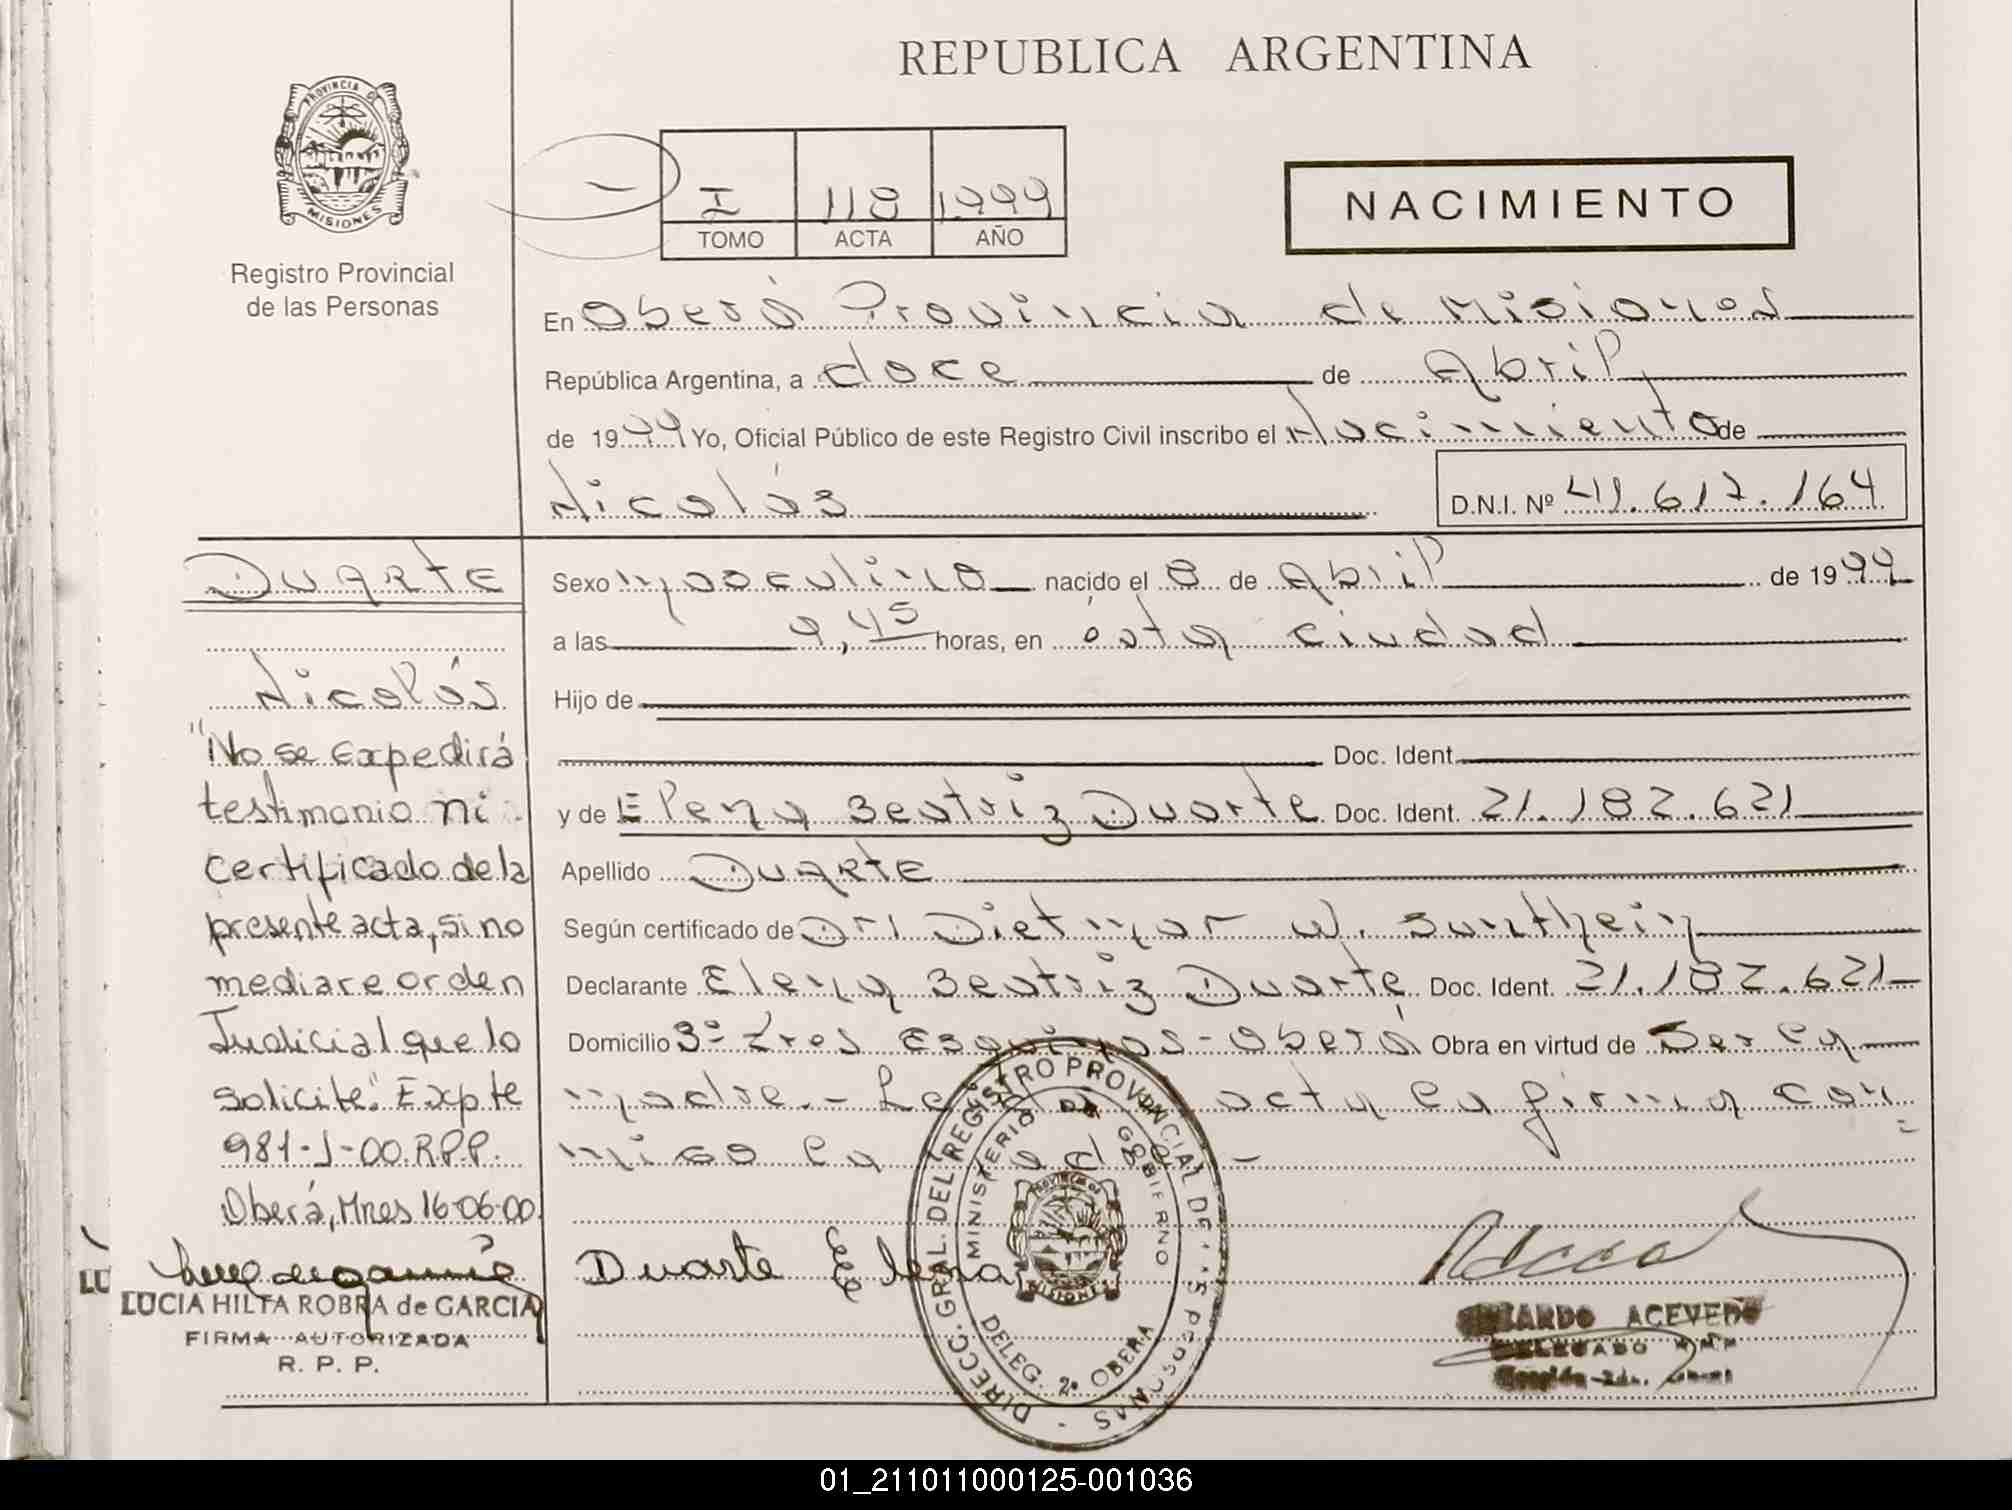 REPUBLICA ARGENTINA
PROVINCIA DE
MISIONES
Registro Provincial
de las Personas
I 118 1999
TOMO ACTA AÑO
NACIMIENTO
En Oberá Provincia de Misiones
República Argentina, a doce de Abril
de 1999 Yo, Oficial Público de este Registro Civil inscribo el Nacimiento de
Nicolás
D.N.I. Nº 41.617.164
Duarte
Nicolás
"No se expedirá
testimonio ni
certificado de la
presente acta, si no
mediare orden
Judicial que lo
solicite". Expte
981-J-00.R.P.P.
Oberá, Mnes 16-06-00.
LUCIA HILTA ROBRA de GARCIA
FIRMA AUTORIZADA
R. P. P.
Sexo masculino nacido el 8 de Abril de 1999
a las 9,45 horas, en ésta ciudad
Hijo de
Doc. Ident.
y de Elena Beatriz Duarte Doc. Ident. 21.182.621
Apellido Duarte
Según certificado de Dr. Dietmar W. Sunthein
Declarante Elena Beatriz Duarte Doc. Ident. 21.182.621-
Domicilio 3º Tres Esquinas-Oberá Obra en virtud de Ser la
madre.- acta la firma con
migo la
DIRECC. GRAL. DEL REGISTRO PROVINCIAL DE LAS PERSONAS
MINISTERIO DE GOBIERNO
PROVINCIA DE
MISIONES
DELEG. 2ª OBERA
Duarte Elena
ACEVEDO
DELEGADO
01_211011000125-001036